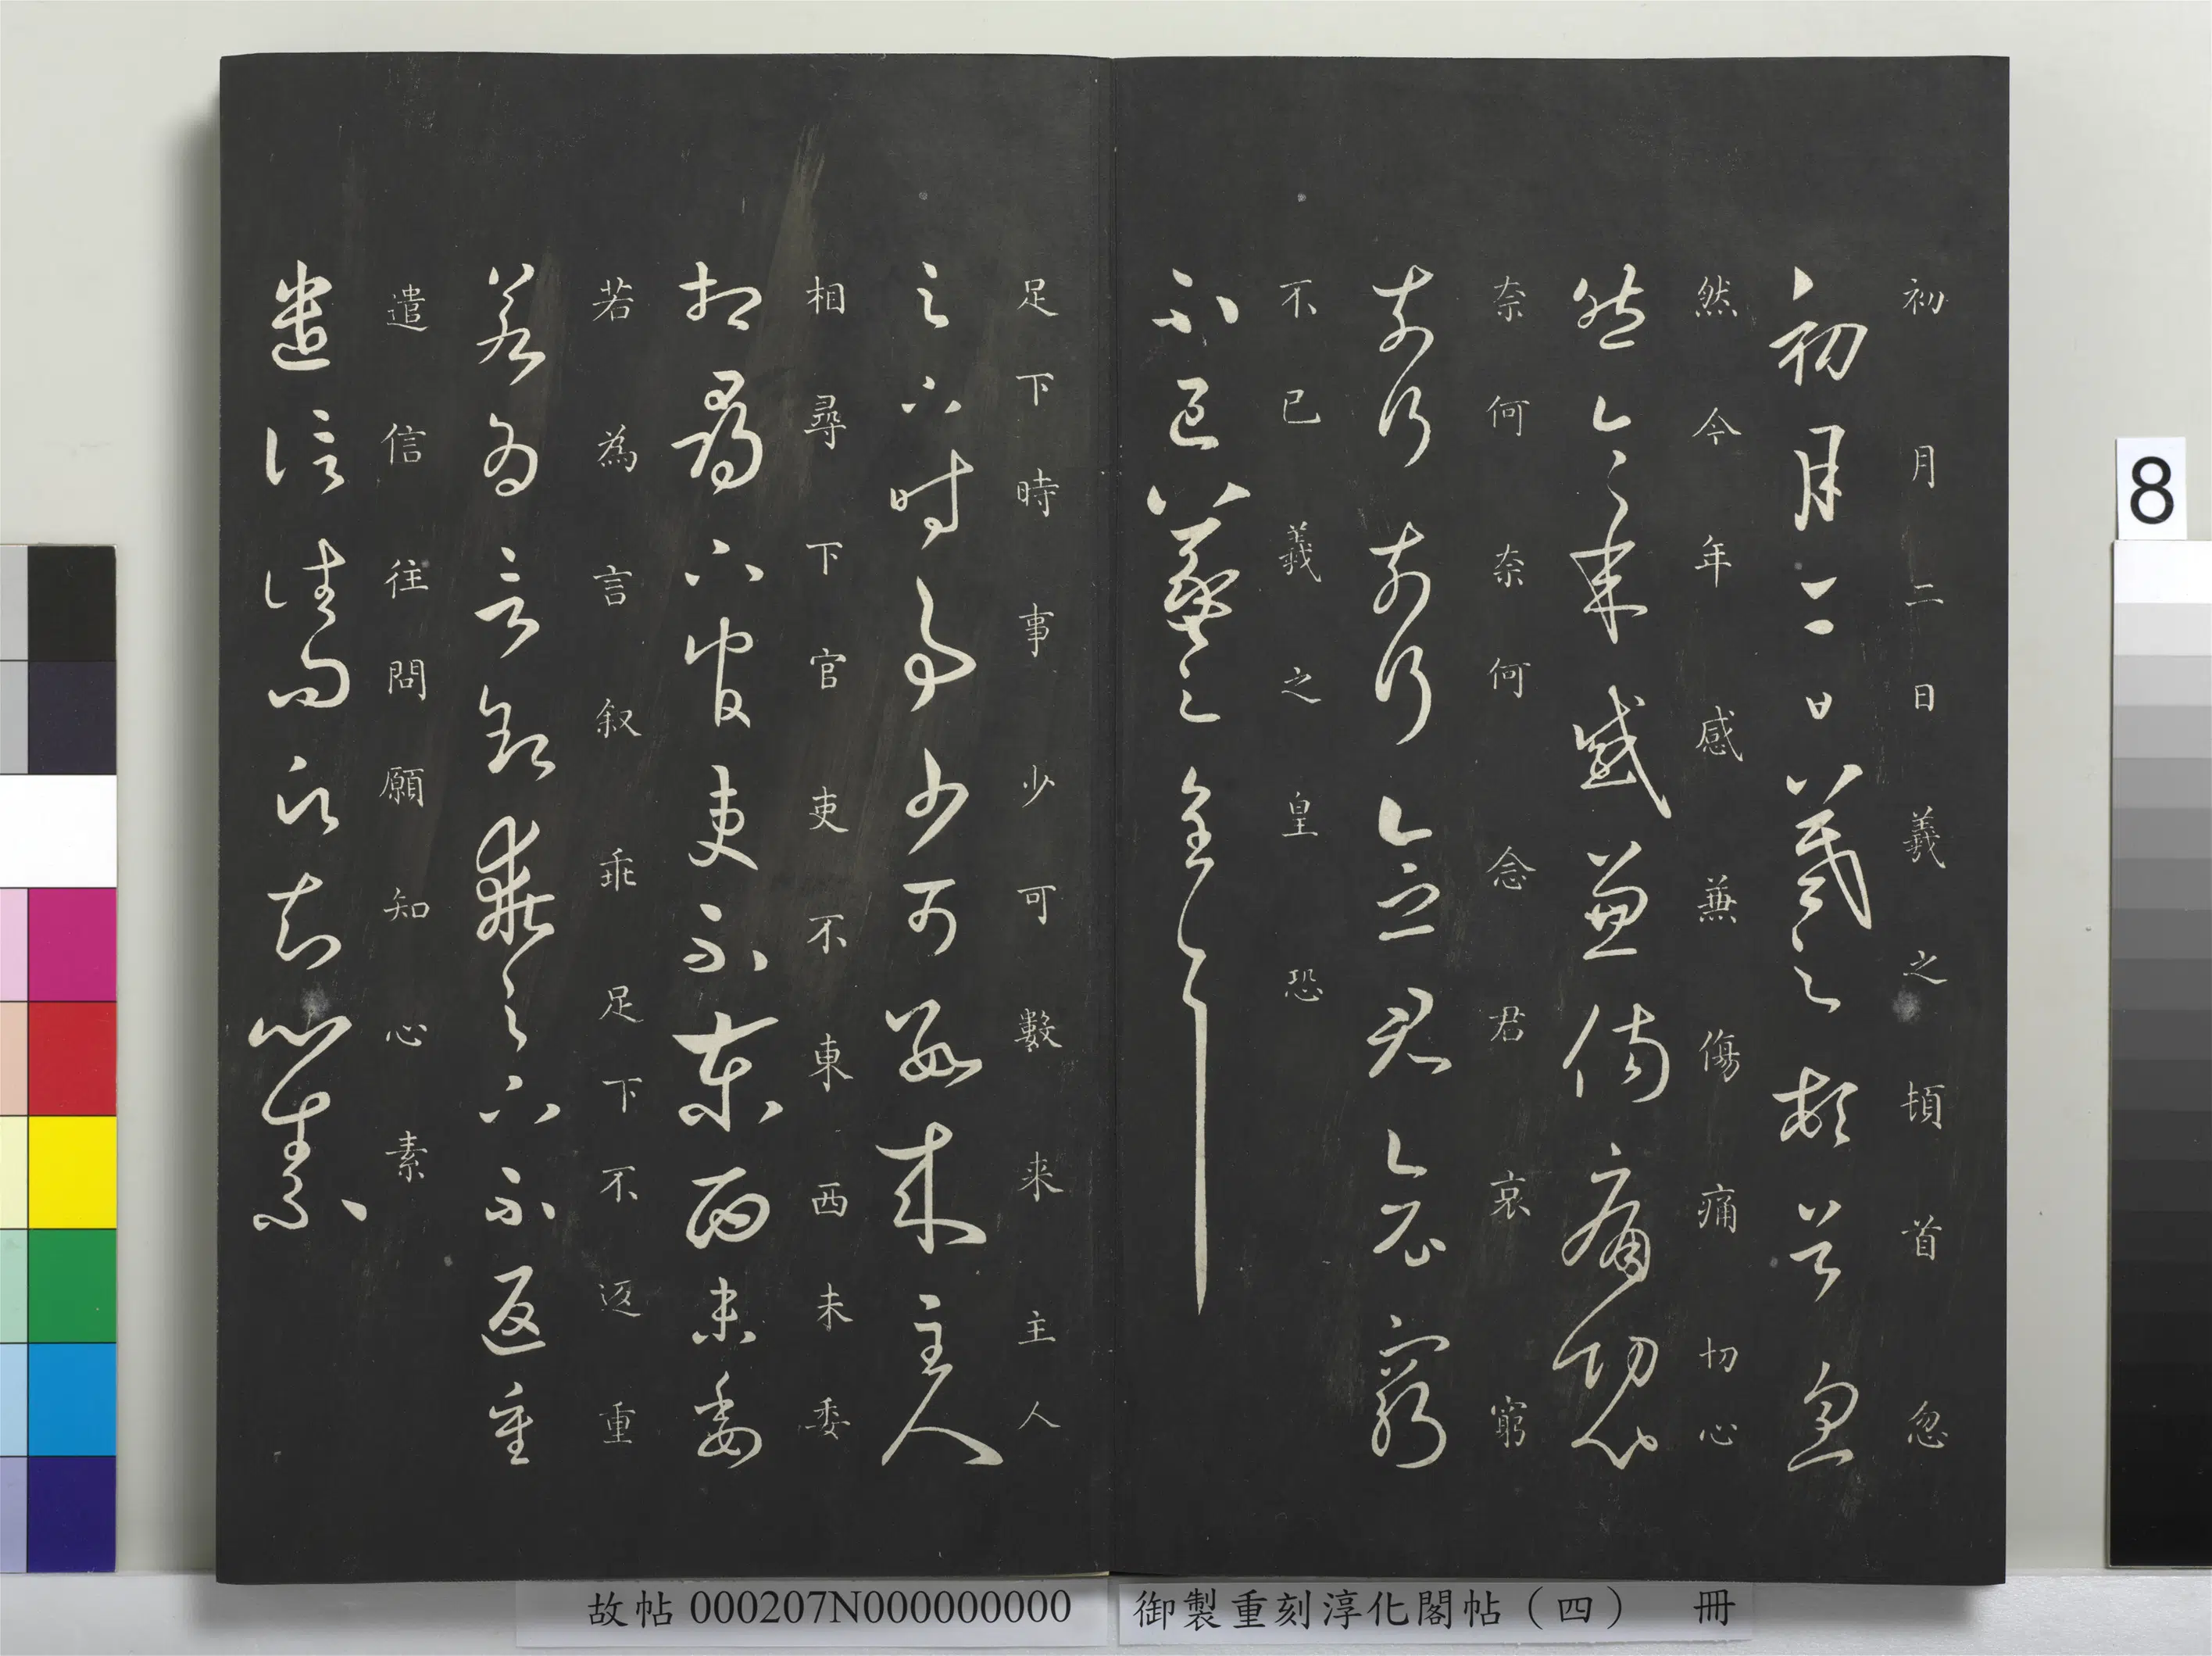 初月二日羲之頓首忽
初月二日羲之頓首忽
然今年感兼傷痛切心
然今年感兼傷痛切心
奈何奈何念君哀窮
奈何奈何念君哀窮
不已羲之皇恐
不已羲之皇恐
足下時事少可數来主人
足下時事少可數来主人
相尋下官吏不東西未委
相尋下官吏不東西未委
若為言叙乖足下不返重
若為言叙乖足下不返重
遣信往問願知心素
遣信往問願知心素
8
御製重刻淳化閣帖（四） 冊
故帖000207N000000000